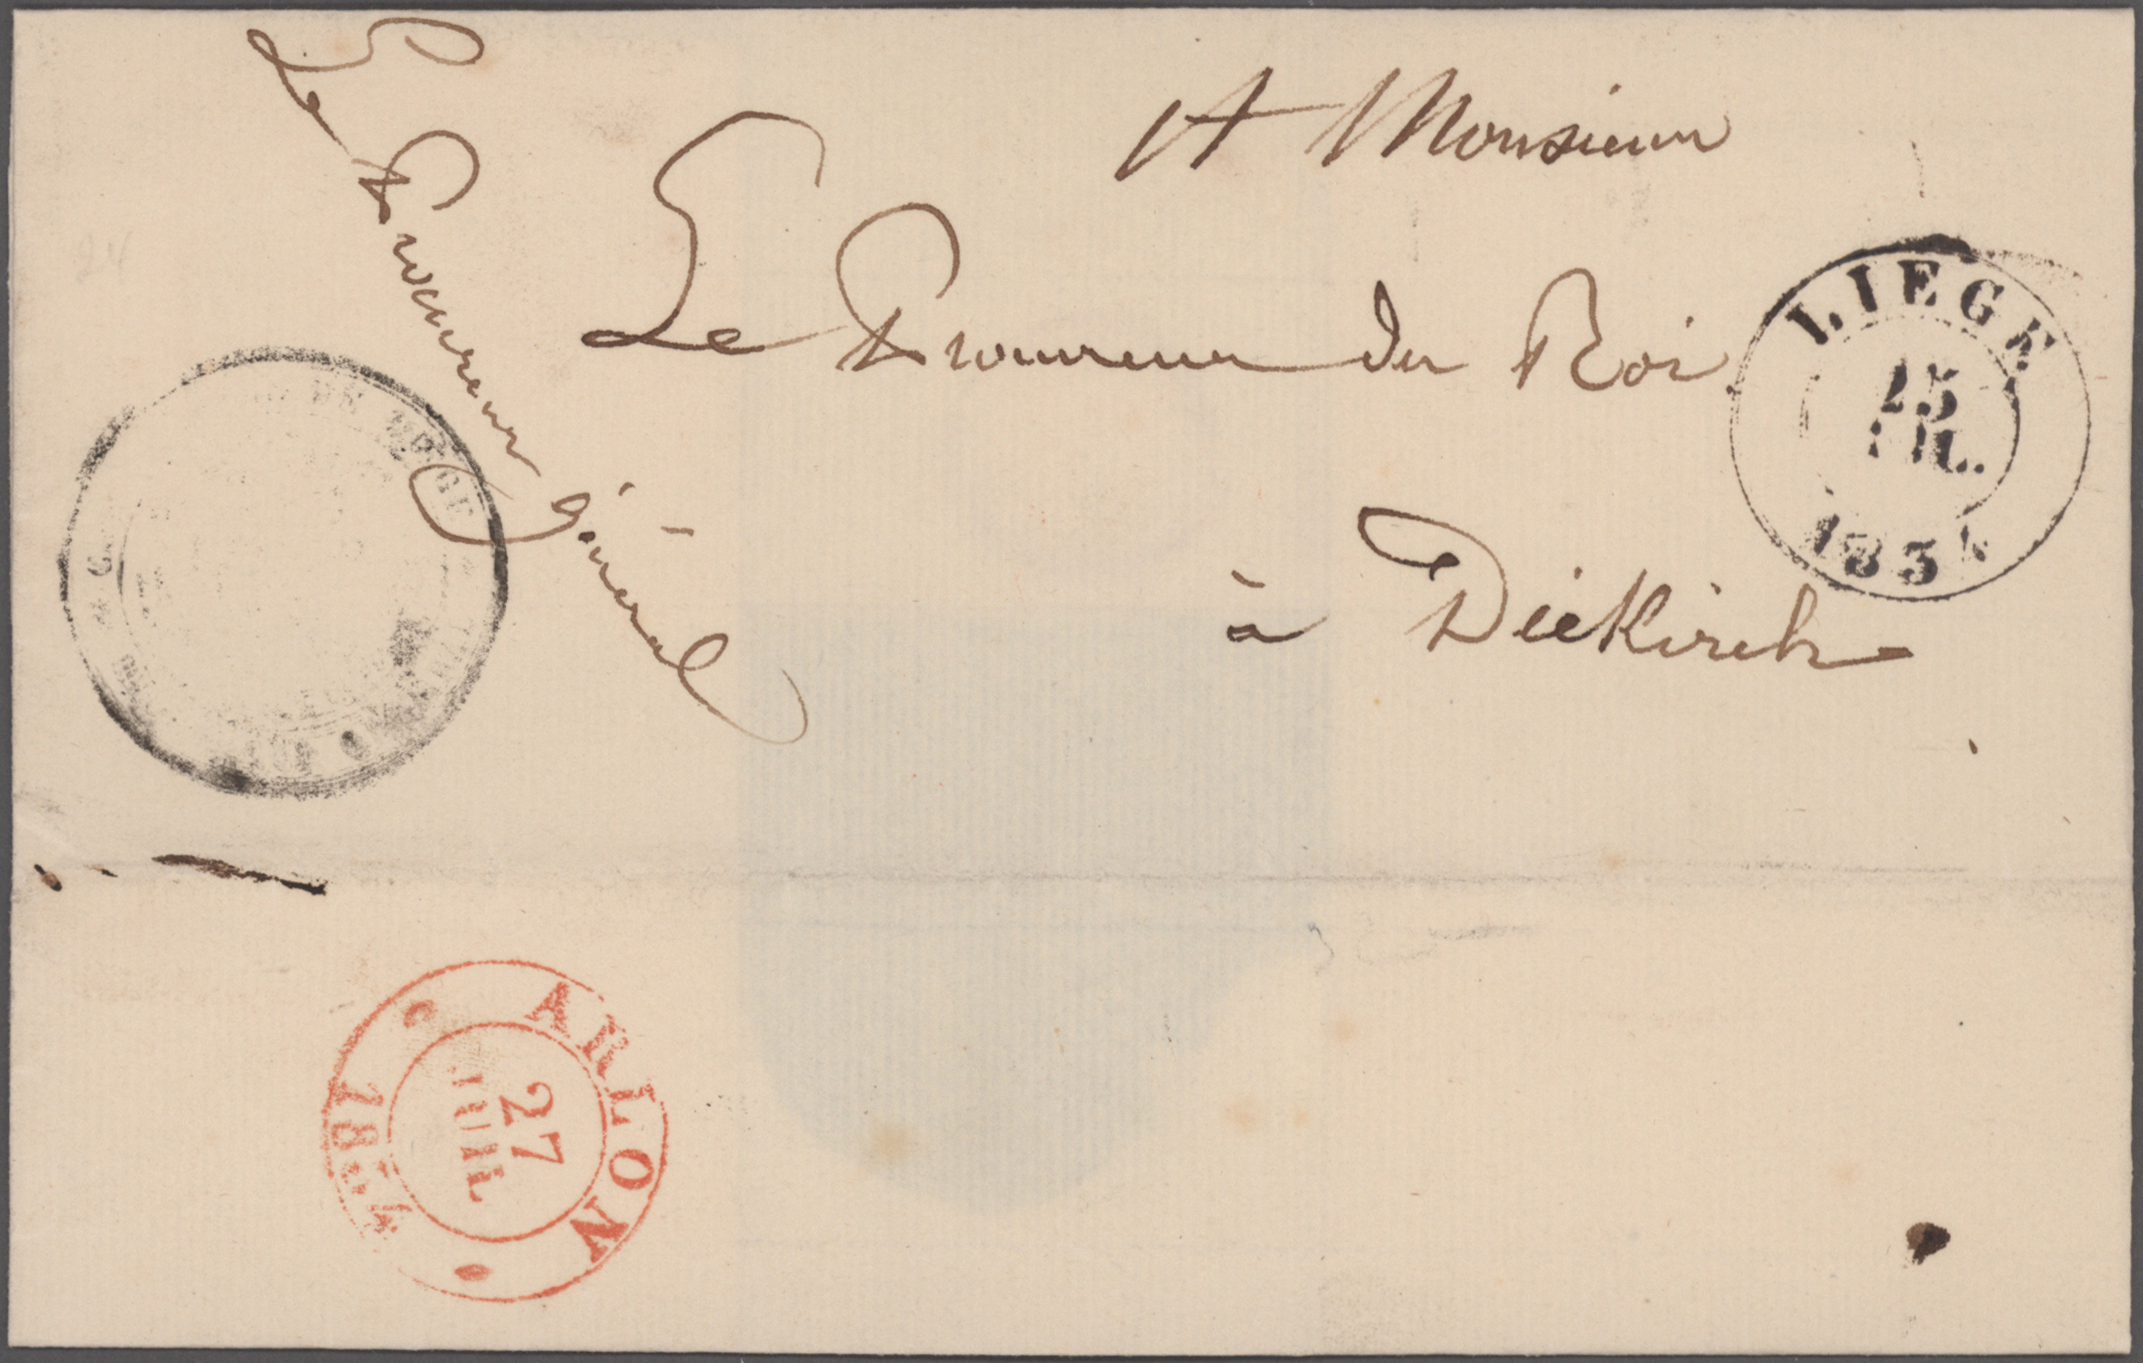 A Monsieur
Le Procureur du Roi
à Diekirch
Le Procureur général
LIEGE
25
1834
ARLON
27
JUIL
1834
24